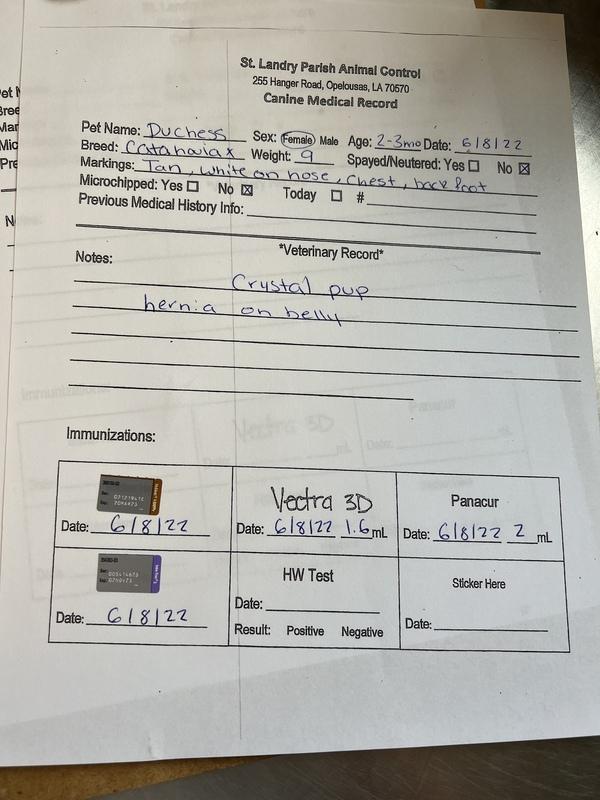 St. Landry Parish Animal Control
255 Hanger Road, Opelousas, LA 70570
Canine Medical Record
Pet Name: Duchess Sex: Female Male Age: 2-3mo Date: 6/8/22
Breed: Catahoula x Weight: 9 Spayed/Neutered: Yes ☐ No ☒
Markings: Tan, white on nose, chest, back foot
Microchipped: Yes ☐ No ☒ Today ☐ #
Previous Medical History Info:
*Veterinary Record*
Notes:
Crystal pup
hernia on belly
Immunizations:
Vectra 3D
Panacur
Date: 6/8/22
Date: 6/8/22 1.6 mL
Date: 6/8/22 2 mL
HW Test
Sticker Here
Date: 6/8/22
Date:
Date:
Result: Positive Negative